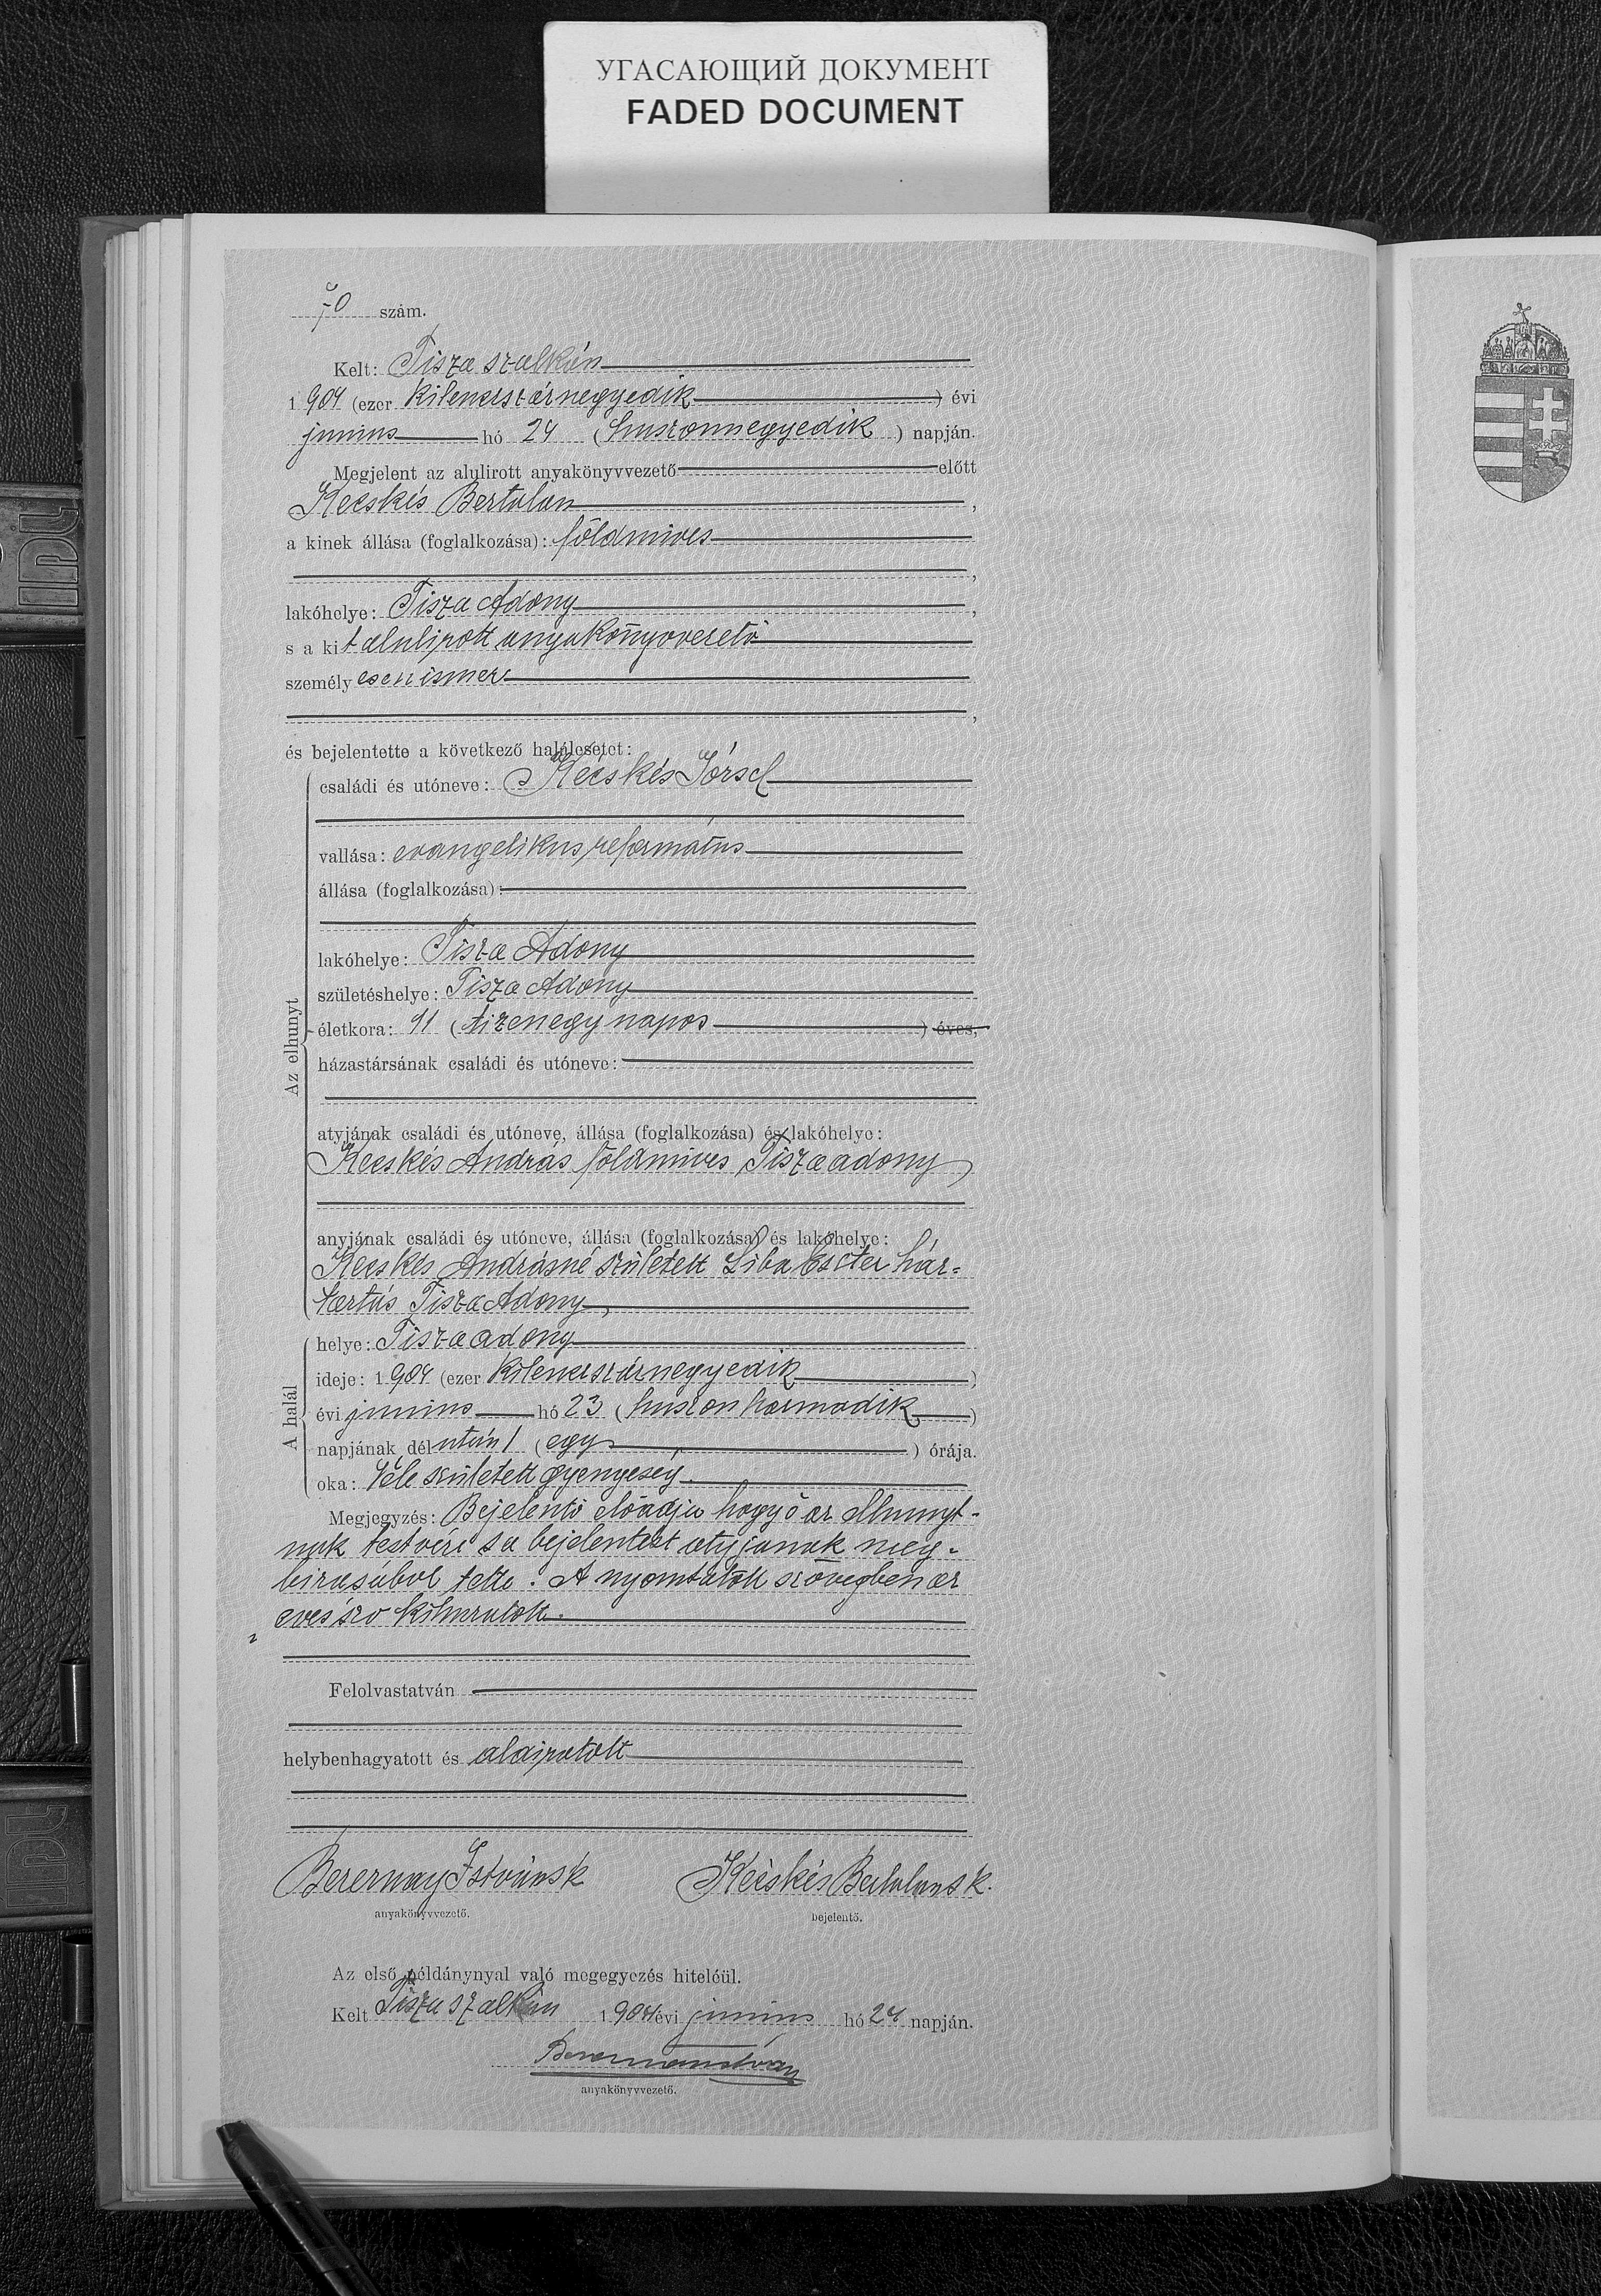 УГАСАЮЩИЙ ДОКУМЕНТ
FADED DOCUMENT
70 szám.
Kelt: Tisza szalkán
1904 (ezer kilenczszáznegyedik ) évi
junius hó 24 (huszonnegyedik ) napján.
Megjelent az alulirott anyakönyvvezető előtt
Kecskés Bertalan ,
a kinek állása (foglalkozása): földmives
,
lakóhelye: Tisza Adony ,
s a kit alulirott anyakönyvvezető
személyesen ismer
,
és bejelentette a következő halálesetet:
Az elhunyt
családi és utóneve: Kecskés József
vallása: evangelikus református
állása (foglalkozása):
lakóhelye: Tisza Adony
születéshelye: Tisza Adony
életkora: 11 (tizenegy napos ) éves,
házastársának családi és utóneve:
atyjának családi és utóneve, állása (foglalkozása) és lakóhelye:
Kecskés András földmives Tiszaadony
anyjának családi és utóneve, állása (foglalkozása) és lakóhelye:
Kecskés Andrásné született Liba Eszter ház-
tartás Tisza Adony,
A halál
helye: Tiszaadony
ideje: 1904 (ezer kilenczszáznegyedik )
évi junius hó 23 (huszonharmadik )
napjának délután 1 (egy ) órája.
oka: Vele született gyengeség.
Megjegyzés: Bejelentő előadja hogy ő az elhunyt-
nak testvére s a bejelentést atyjának meg-
bizásából tette. A nyomtatott szövegben az
éves szó kihuzatott.
Felolvastatván
helybenhagyatott és aláiratott
Berernay István sk
anyakönyvvezető.
Kecskés Bertalan sk.
bejelentő.
Az első példánynyal való megegyezés hiteléül.
Kelt Tisza szalkán 1904 évi junius hó 24 napján.
anyakönyvvezető.